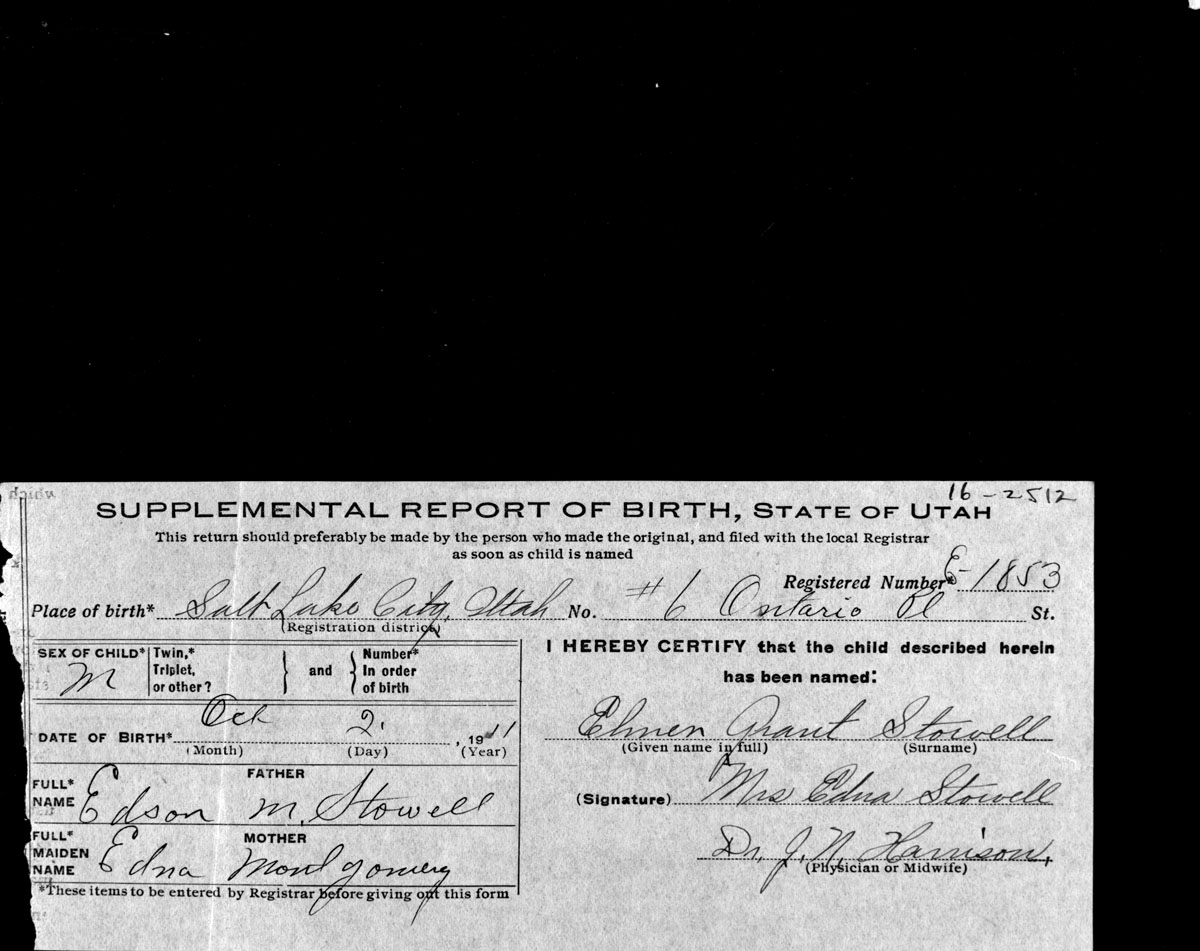 16-2512
SUPPLEMENTAL REPORT OF BIRTH, STATE OF UTAH
This return should preferably be made by the person who made the original, and filed with the local Registrar
as soon as child is named
Registered Number* E-1853
Place of birth* Salt Lake City, Utah No. #6 Ontario Pl St.
(Registration district)
SEX OF CHILD* M Twin,* Triplet, or other? } and { Number* In order of birth
DATE OF BIRTH* Oct 2, 1911
(Month) (Day) (Year)
FATHER
FULL* NAME Edson M. Stowell
MOTHER
FULL* MAIDEN NAME Edna Montgomery
*These items to be entered by Registrar before giving out this form
I HEREBY CERTIFY that the child described herein
has been named:
Elmer Grant Stowell
(Given name in full) (Surname)
(Signature) Mrs Edna Stowell
Dr. J. N. Harrison,
(Physician or Midwife)